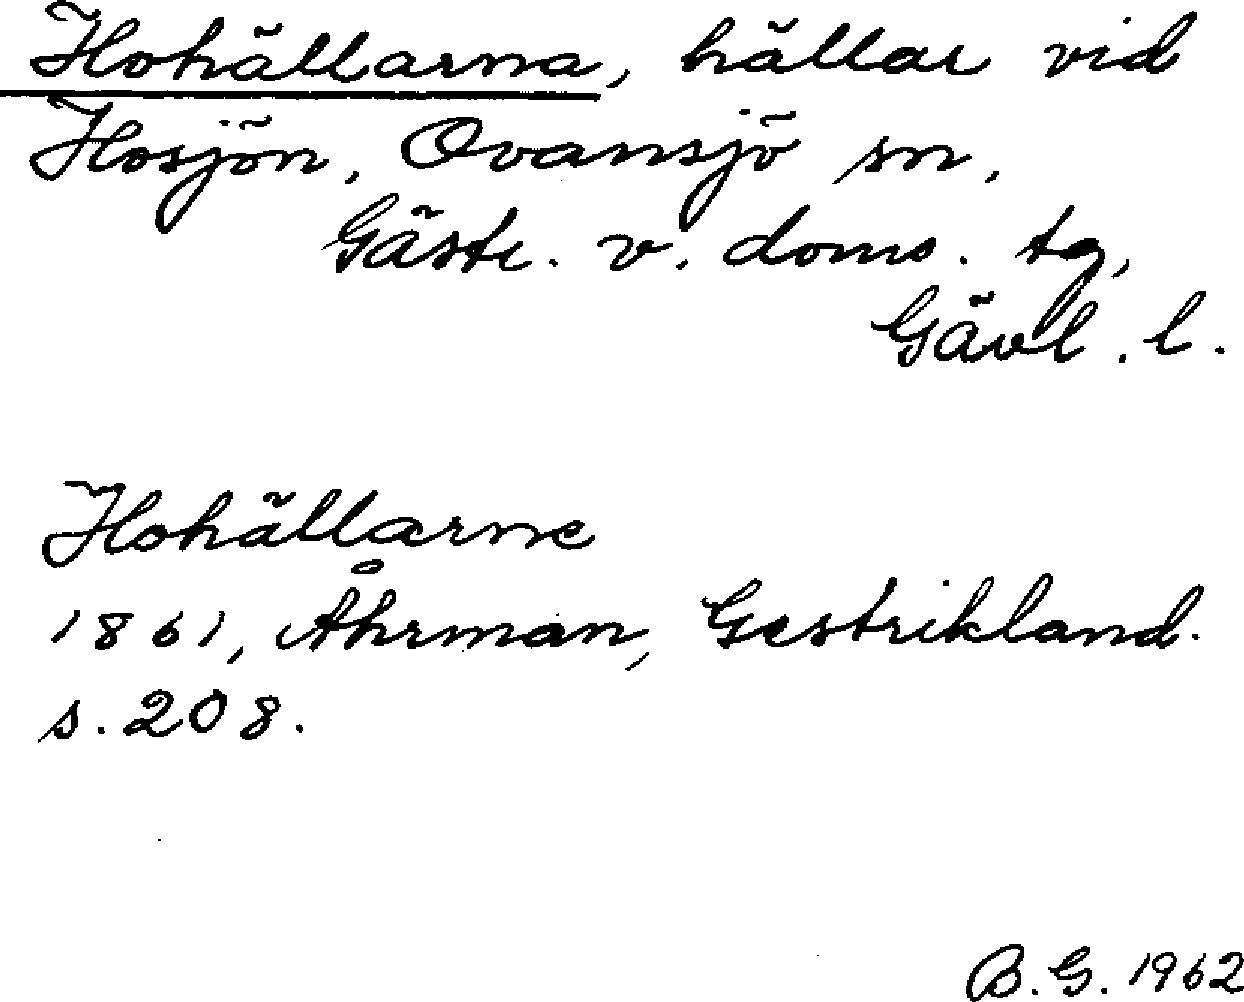 Hohällarna, hällar vid
Hosjön, Ovansjö sn,
Gästr. v. doms. tg,
Gävl. l.
Hohällarne
1861, Åhrman, Gestrikland.
s. 208.
B. G. 1962